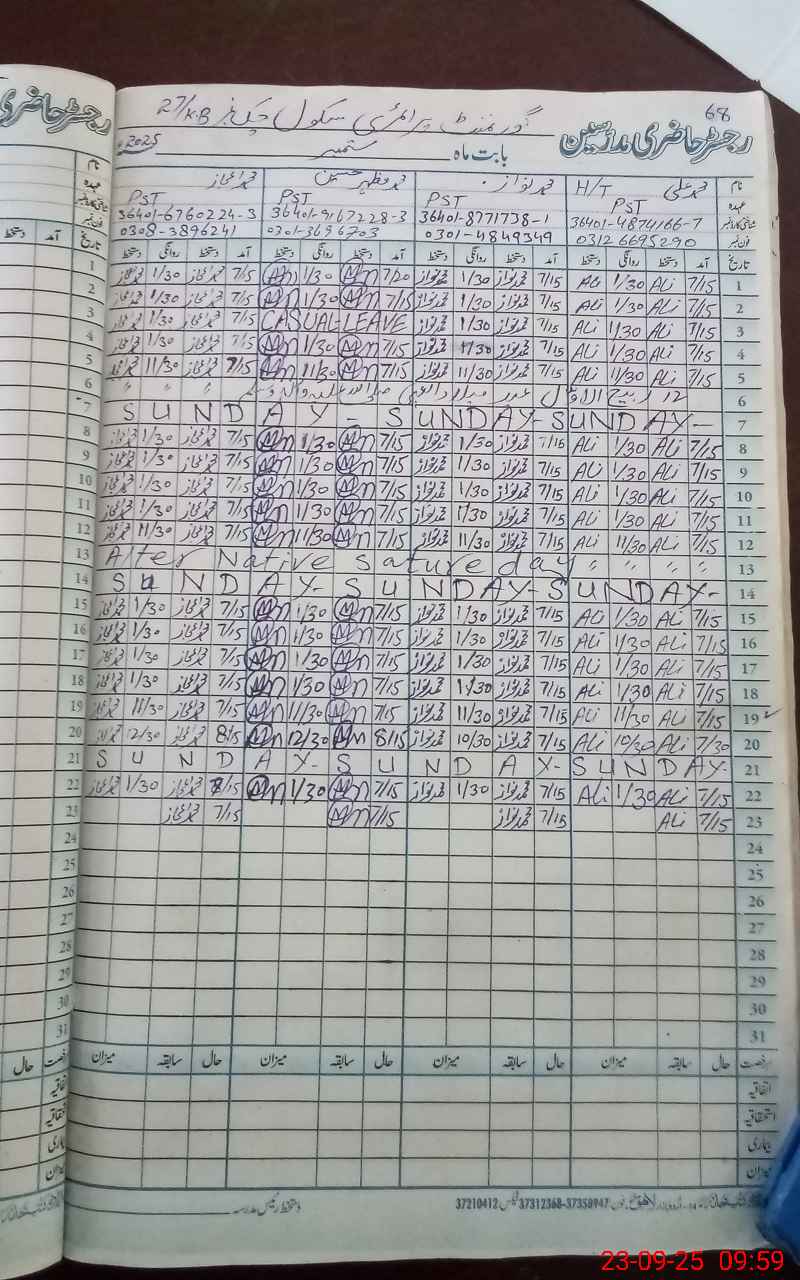 68
گورنمنٹ پرائمری سکول چک نمبر 27/KB
رجسٹر حاضری مدرسین بابت ماہ ستمبر 2025ء
نام محمد علی H/T محمد نواز محمد مظہر حسین محمد اعجاز
عہدہ PST PST PST PST
شناختی کارڈ نمبر 36401-4874166-7 36401-8771738-1 36401-9167228-3 36401-6760224-3
فون نمبر 0312 6695290 0301-4849349 0301-3696703 0308-3896241
تاریخ آمد دستخط روانگی دستخط آمد دستخط روانگی دستخط آمد دستخط روانگی دستخط آمد دستخط روانگی دستخط
1 7/15 Ali 1/30 Ali 7/15 محمد نواز 1/30 محمد نواز 7/20 1/30 7/15 محمد اعجاز 1/30 محمد اعجاز
2 7/15 Ali 1/30 Ali 7/15 محمد نواز 1/30 محمد نواز 7/15 1/30 7/15 محمد اعجاز 1/30 محمد اعجاز
3 7/15 Ali 1/30 Ali 7/15 محمد نواز 1/30 محمد نواز CASUAL LEAVE 7/15 محمد اعجاز 1/30 محمد اعجاز
4 7/15 Ali 1/30 Ali 7/15 محمد نواز 1/30 محمد نواز 7/15 1/30 7/15 محمد اعجاز 1/30 محمد اعجاز
5 7/15 Ali 11/30 Ali 7/15 محمد نواز 11/30 محمد نواز 7/15 11/30 7/15 محمد اعجاز 11/30 محمد اعجاز
6 12 ربیع الاوّل عید میلاد النبی صلی اللہ علیہ وآلہ وسلم " " "
7 SUNDAY - SUNDAY - SUNDAY -
8 7/15 Ali 1/30 Ali 7/15 محمد نواز 1/30 محمد نواز 7/15 1/30 7/15 محمد اعجاز 1/30 محمد اعجاز
9 7/15 Ali 1/30 Ali 7/15 محمد نواز 1/30 محمد نواز 7/15 1/30 7/15 محمد اعجاز 1/30 محمد اعجاز
10 7/15 Ali 1/30 Ali 7/15 محمد نواز 1/30 محمد نواز 7/15 1/30 7/15 محمد اعجاز 1/30 محمد اعجاز
11 7/15 Ali 1/30 Ali 7/15 محمد نواز 1/30 محمد نواز 7/15 1/30 7/15 محمد اعجاز 1/30 محمد اعجاز
12 7/15 Ali 11/30 Ali 7/15 محمد نواز 11/30 محمد نواز 7/15 11/30 7/15 محمد اعجاز 11/30 محمد اعجاز
13 Alter Native satureday " " " "
14 SUNDAY - SUNDAY - SUNDAY -
15 7/15 Ali 1/30 Ali 7/15 محمد نواز 1/30 محمد نواز 7/15 1/30 7/15 محمد اعجاز 1/30 محمد اعجاز
16 7/15 Ali 1/30 Ali 7/15 محمد نواز 1/30 محمد نواز 7/15 1/30 7/15 محمد اعجاز 1/30 محمد اعجاز
17 7/15 Ali 1/30 Ali 7/15 محمد نواز 1/30 محمد نواز 7/15 1/30 7/15 محمد اعجاز 1/30 محمد اعجاز
18 7/15 Ali 1/30 Ali 7/15 محمد نواز 1/30 محمد نواز 7/15 1/30 7/15 محمد اعجاز 1/30 محمد اعجاز
19 7/15 Ali 11/30 Ali 7/15 محمد نواز 11/30 محمد نواز 7/15 11/30 7/15 محمد اعجاز 11/30 محمد اعجاز
20 7/30 Ali 10/30 Ali 7/15 محمد نواز 10/30 محمد نواز 8/15 12/30 8/15 محمد اعجاز 12/30 محمد اعجاز
21 SUNDAY - SUNDAY - SUNDAY -
22 7/15 Ali 1/30 Ali 7/15 محمد نواز 1/30 محمد نواز 7/15 1/30 8/15 محمد اعجاز 1/30 محمد اعجاز
23 7/15 Ali 7/15 محمد نواز 7/15 7/15 محمد اعجاز
24
25
26
27
28
29
30
31
رخصت حال سابقہ میزان حال سابقہ میزان حال سابقہ میزان حال سابقہ میزان
اتفاقیہ
استحقاقیہ
بیماری
میزان
37210412 فیکس 37312368-37358947 فون
دستخط رئیس مدرسہ
23-09-25 09:59